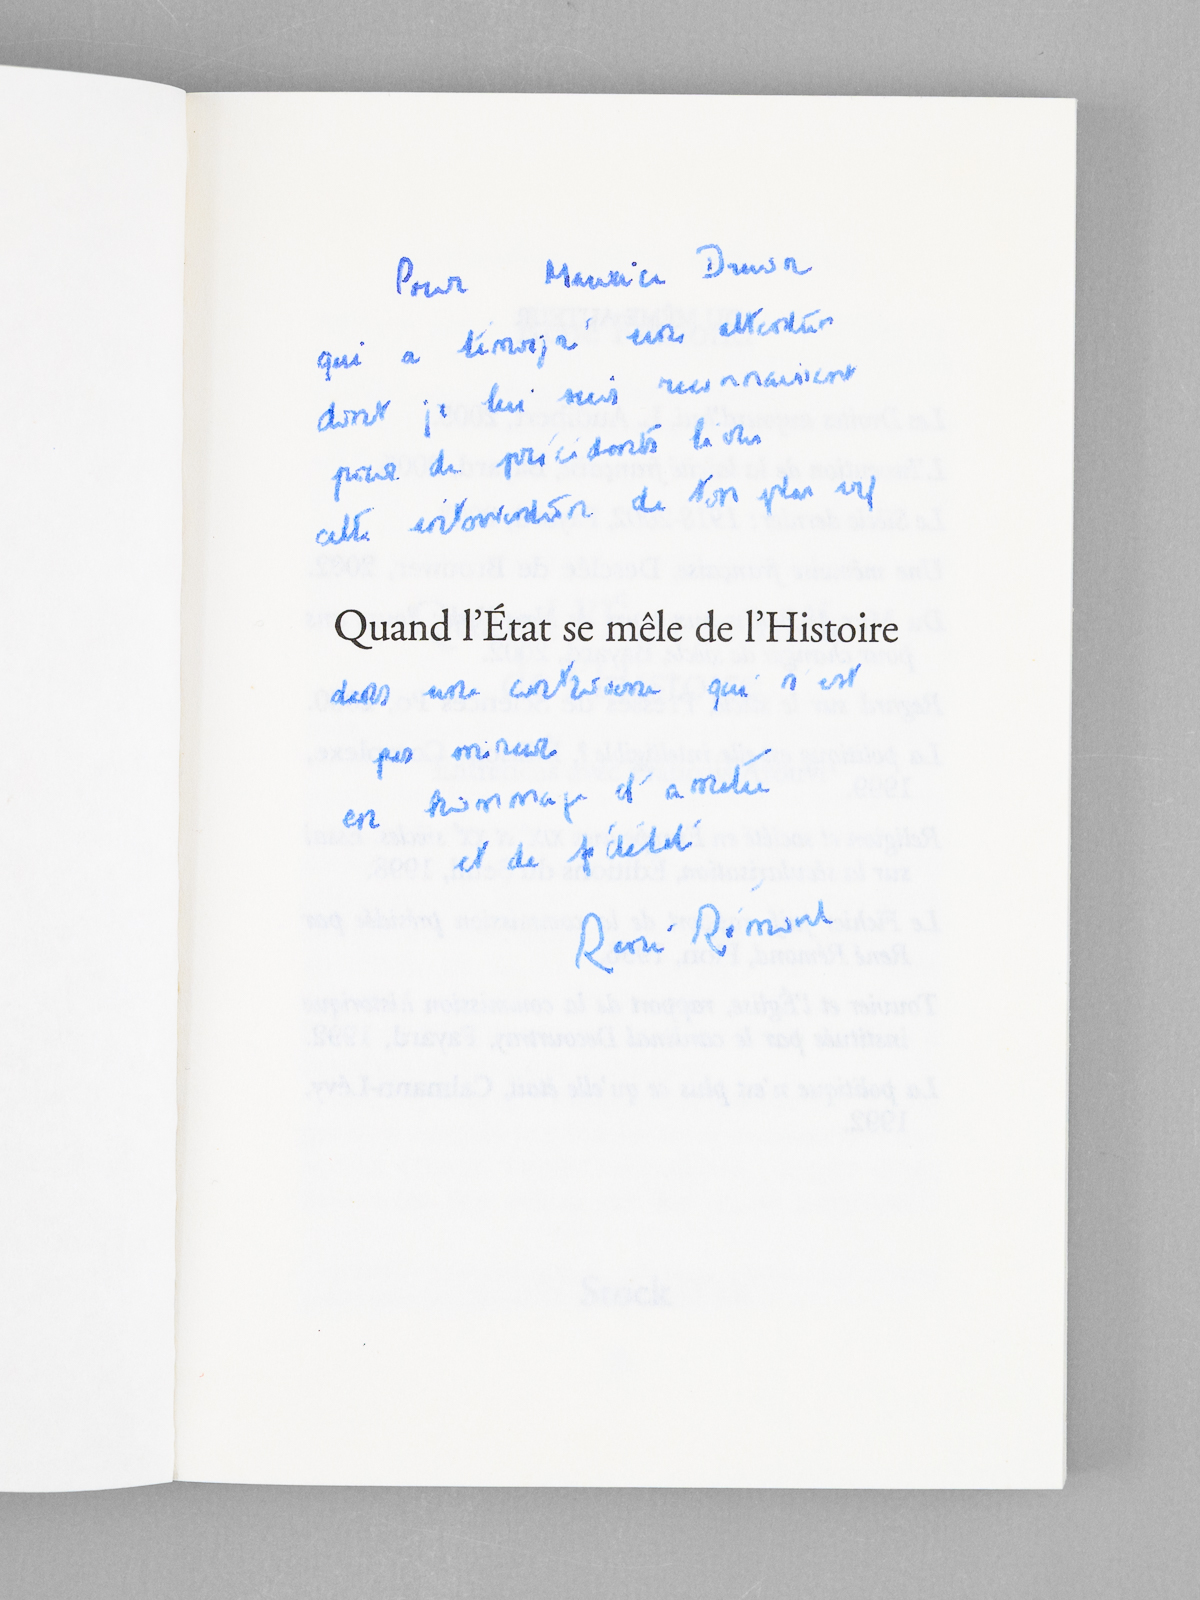 Pour Maurice Druon
qui a témoigné une attention
dont je lui suis reconnaissant
pour de précédents livres
cette intervention de ton plus vif
Quand l'État se mêle de l'Histoire
dans une controverse qui n'est
pas mineure
en hommage d'amitié
et de fidélité
René Rémond